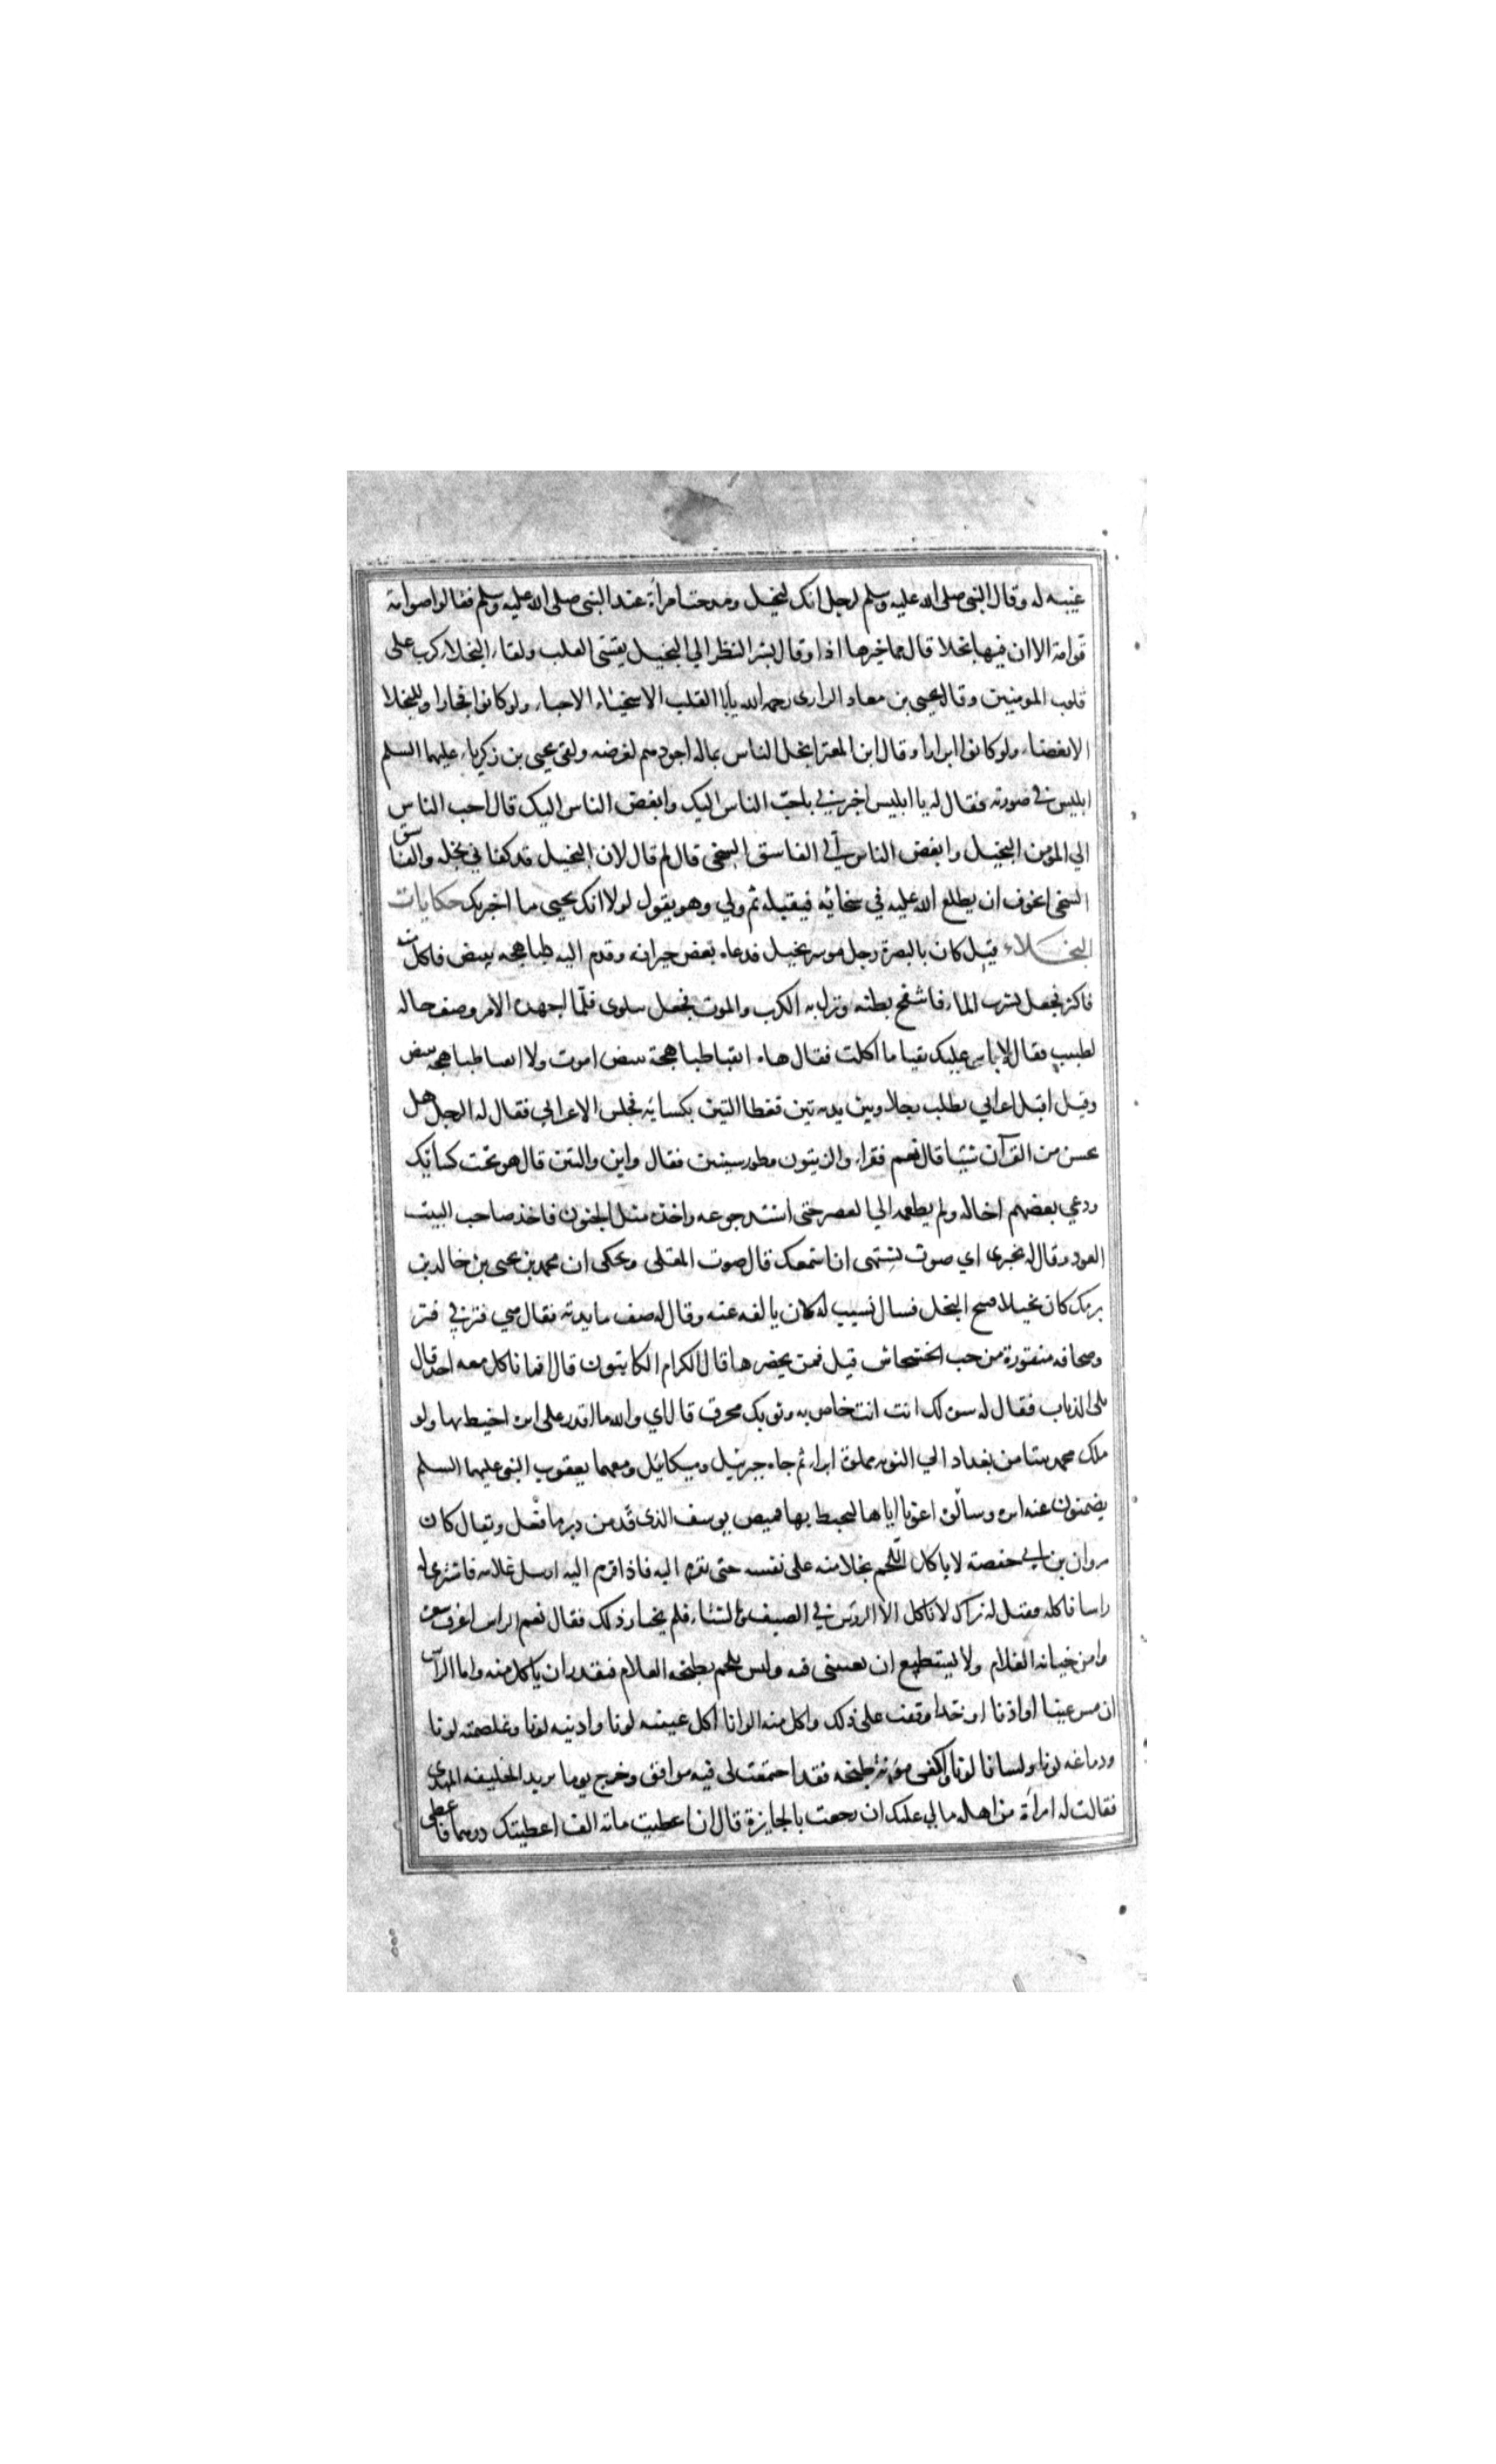 غيبه له وقال النبي صلى الله عليه وسلم لرجل انك لبخيل ومدحت امرأة عند النبي صلى الله عليه وسلم فقالوا صوامة
قوامة الا ان فيها بخلا قال فما خيرها اذا وقال بشر النظر الي البخيل يقسى القلب ولقاء البخلاء كرب على
قلوب المومنين وقال يحيى بن معاد الرازى رحمه الله يأبا القلب الاسخياء الا حبا ولو كانوا فجارا وللبخلا
الا بغضا ولو كانوا ابرارا وقال ابن المعتز ابخل الناس بماله اجودهم لعرضه ولقي يحيى بن زكريا عليهما السلم
ابليس في صورته فقال له يا ابليس اخبرني باحب الناس اليك وابغض الناس اليك قال احب الناس
الي المؤمن البخيل وابغض الناس الي الفاسق السخى قال لم قال لان البخيل قد كفاني بخله والفاسق
السخى اتخوف ان يطلع الله عليه في سخائه فيقبله ثم ولي وهو يقول لولا انك يحيى ما اخبرتك حكايات
البخلاء قيل كان بالبصرة رجل موسر بخيل فدعاه بعض جيرانه وقدم اليه طباهجه ببيض فاكل منه
فاكثر فجعل يشرب الماء فانتفخ بطنه ونزل به الكرب والموت فجعل يتلوى فلما اجهده الامر وصف حاله
لطبيب فقال لا باس عليك تقيا ما اكلت فقال هاه اتقيا طباهجة ببيض اموت ولا اتقيا طباهجه ببيض
وقيل اقبل اعرابي يطلب رجلا وبين يديه تين فغطا التين بكسائه فجلس الاعرابي فقال له الرجل هل
تحسن من القرآن شيئا قال نعم فقراء والزيتون وطور سينين فقال واين والتين قال هو تحت كسائك
ودعي بعضهم اخا له ولم يطعمه الي العصر حتى اشتد جوعه واخذه مثل الجنون فاخذ صاحب البيت
العود وقال له بحيرى اي صوت تشتهى ان اسمعك قال صوت المقلى ويحكى ان محمد بن يحيى بن خالد بن
برمك كان بخيلا قبيح البخل فسال نسيب له كان يالفه عنه وقال له صف مايدته فقال هي فتر في فتر
وصحافه منقورة من حب الخشخاش قيل فمن يحضرها قال الكرام الكاتبون قال افما ناكل معه احد قال
بلى الذباب فقال له سوءتك انت انت خاص به وثوبك محرق قال اي والله ما اقدر على ابرة اخيطه بها ولو
ملك محمد بيتا من بغداد الي النوبه مملوة ابراء ثم جاه جبرئيل وميكائيل ومعهما يعقوب النبي عليهما السلم
يضمنون عنه ابرة وسالوه اعرنا اياها ليخيط بها قميص يوسف الذى قد من دبر ما فعل ويقال كان
مروان بن ابي حفصة لا ياكل اللحم بخلا منه على نفسه حتى يقرم اليه فاذا قرم اليه ارسل غلامه فاشترى له
راسا فاكله فقيل له نراك لا تاكل الا الرؤس في الصيف والشتاء فلم يختار ذلك فقال نعم الراس اعرف سعره
وامن خيانه الغلام ولا يستطيع ان يغبننى فيه وليس بلحم يطبخه الغلام فيقدر ان ياكل منه واما الراس
ان مس عينا او اذنا او خدا وقفت على ذلك واكل منه الوانا اكل عينيه لونا واذنيه لونا وغلصمته لونا
ودماغه لونا ولسانا لونا واكفى مؤنة طبخه فقد اجتمعت لى فيه مرافق وخرج يوما يريد الخليفه المهدي
فقالت له امرأة من اهله مالي عليك ان رجعت بالجايزة قال ان اعطيت مائه الف اعطيتك درهما فاعطى